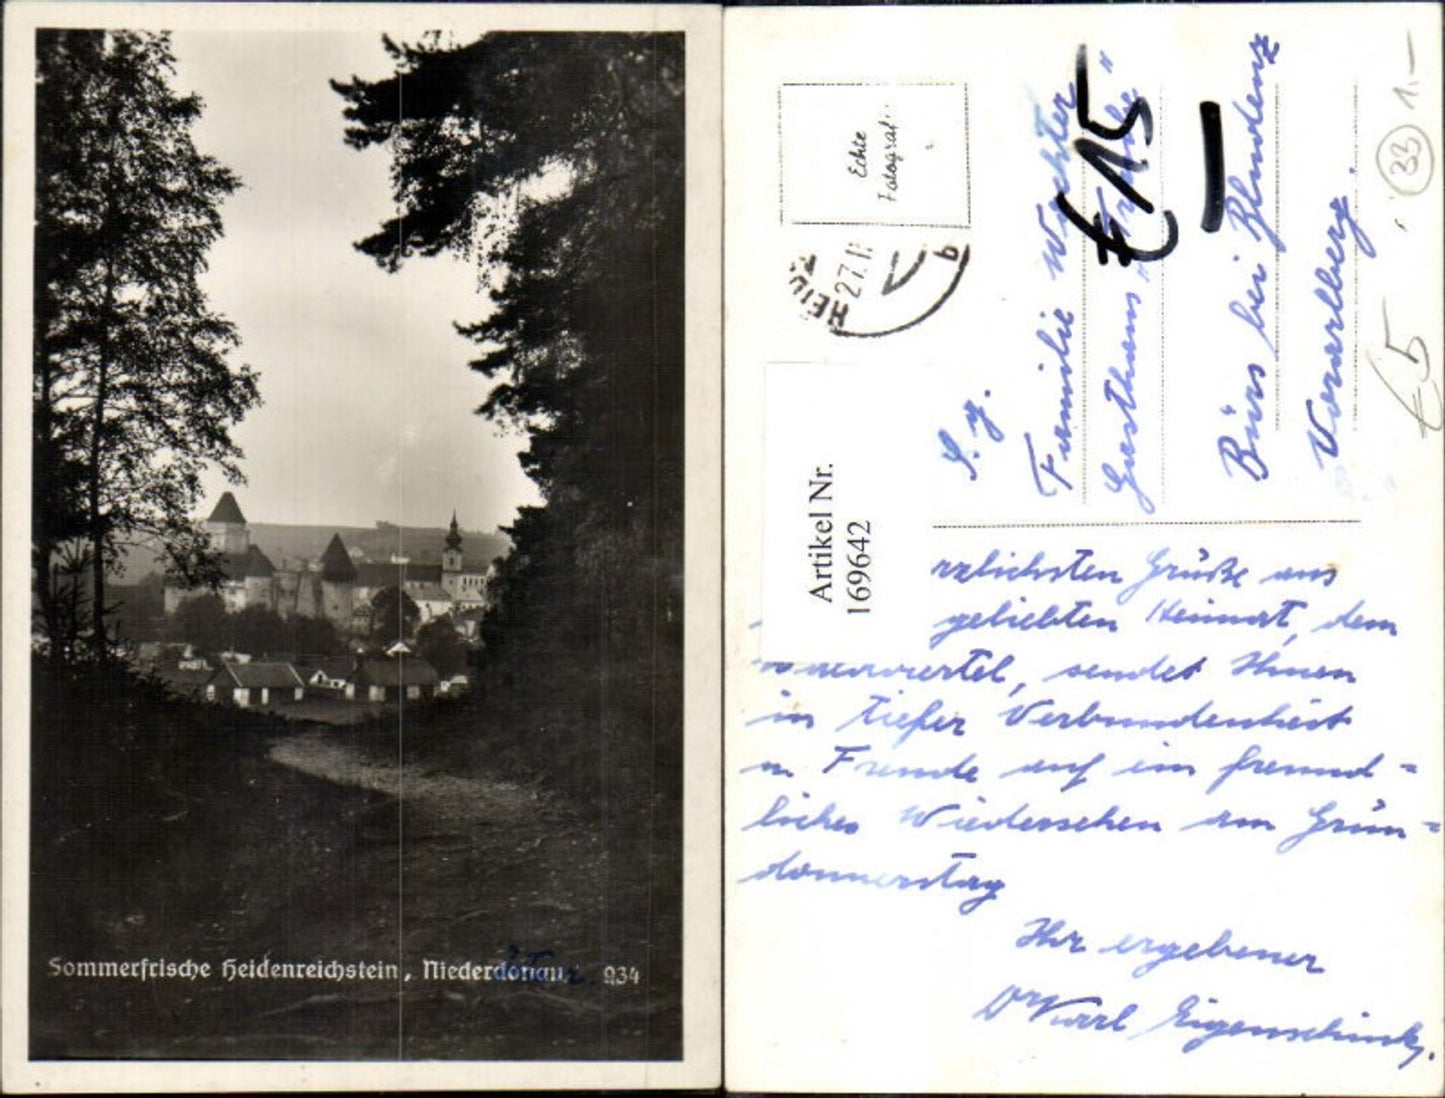 Sommerfrische Heidenreichstein, Niederdonau 234
Echte
Fotografie
27.
Artikel Nr.
169642
S. g.
Familie Wachter
Gasthaus "Traube"
Bürs bei Bludenz
Vorarlberg.
€ 15
€ 5
33
1.-
rzlichsten Grüße aus
geliebten Heimat, dem
viertel, sendet Ihnen
in tiefer Verbundenheit
Freude auf ein freund=
liches Wiedersehen am Grün=
donnerstag
Ihr ergebener
Dr Karl Eigenschink,